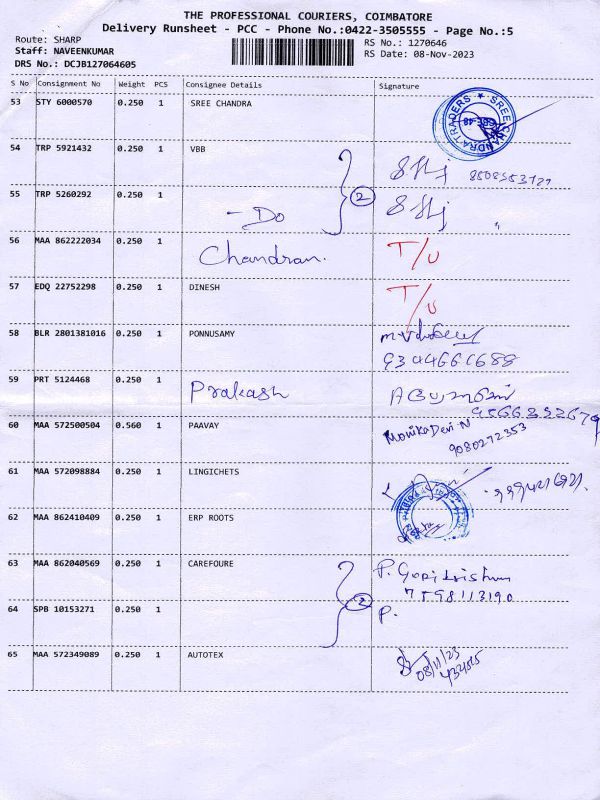 THE PROFESSIONAL COURIERS, COIMBATORE
Delivery Runsheet - PCC - Phone No.:0422-3505555 - Page No.:5
Route: SHARP
RS No.: 1270646
Staff: NAVEENKUMAR
RS Date: 08-Nov-2023
DRS No.: DCJB127064605
S No Consignment No Weight PCS Consignee Details Signature
53 STY 6000570 0.250 1 SREE CHANDRA
SREE CHANDRA TRADERS
CBE-48
54 TRP 5921432 0.250 1 VBB
55 TRP 5260292 0.250 1 - Do
2
56 MAA 862222034 0.250 1 Chandran. T/U
57 EDQ 22752298 0.250 1 DINESH T/U
58 BLR 2801381016 0.250 1 PONNUSAMY
9344661688
59 PRT 5124468 0.250 1 Prakash
60 MAA 572500504 0.560 1 PAAVAY Monika Devi. N
9080272353
61 MAA 572098884 0.250 1 LINGICHETS
62 MAA 862410409 0.250 1 ERP ROOTS
63 MAA 862040569 0.250 1 CAREFOURE P. Gopikrishnan
7598113190
2
64 SPB 10153271 0.250 1 P.
65 MAA 572349089 0.250 1 AUTOTEX
08/11/23